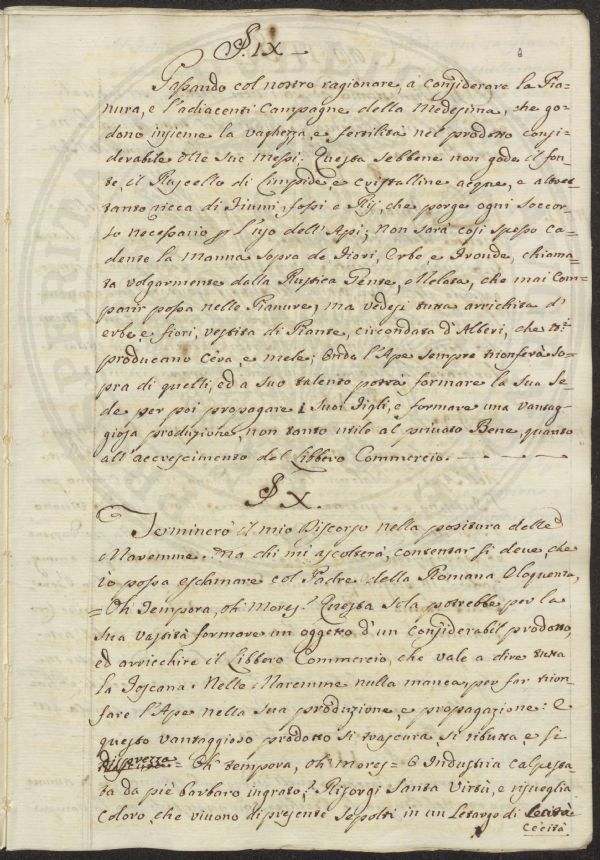 §. IX.
Passando col nostro ragionare, a considerare la Pia-
nura, e l'adiacenti Campagne della Medesima, che go-
dono insieme la vaghezza, e fertilità nel prodotto consi-
derabile delle sue Messi; Questa sebbene non gode il fon-
te, il Ruscello di limpide e cristalline acque, e altret-
tanto ricca di Fiumi, fossi e Rij, che porge ogni soccor-
so necessario p l'uso dell'Api; Non sarà così spesso ca-
dente la Manna sopra de Fiori, Erbe e Fronde, chiama-
ta volgarmente dalla Rustica Gente, Melata, che mai Com-
parir possa nelle Pianure, ma vedesi tutta arrichita d'
erbe, e fiori, vestita di Piante, circondata d'Alberi, che
producano Cera, e mele; Onde l'Ape sempre trionferà so-
pra di quelli, ed a suo talento potrà formare la sua Se-
de per poi propagare i suoi Figli, e formare una vantag-
giosa produzione, non tanto utile al privato Bene, quanto
all'accrescimento del Libbero Commercio.
§ X.
Terminerò il mio Discorso nella positura delle
Maremme. Ma chi mi ascolterà, contentar si deve che
io possa esclamare col Padre della Romana Eloquenza,
= Oh Tempora, oh Mores! Questa sola potrebbe per la
sua vastità formare un oggetto d'un considerabil prodotto,
ed arricchire il Libbero Commercio, che vale a dire tutta
la Toscana. Nelle Maremme nulla manca, per far trion-
fare l'Ape nella sua produzione, e propagazione: E
questo vantaggioso prodotto si trascura, si ributta, e si
disprezza = Oh tempora, oh Mores = O Industria calpesta-
ta da piè barbaro ingrato! Risorgi Santa Virtù, e risveglia
coloro, che vivono di presente sepolti in un Letargo di
Cecità